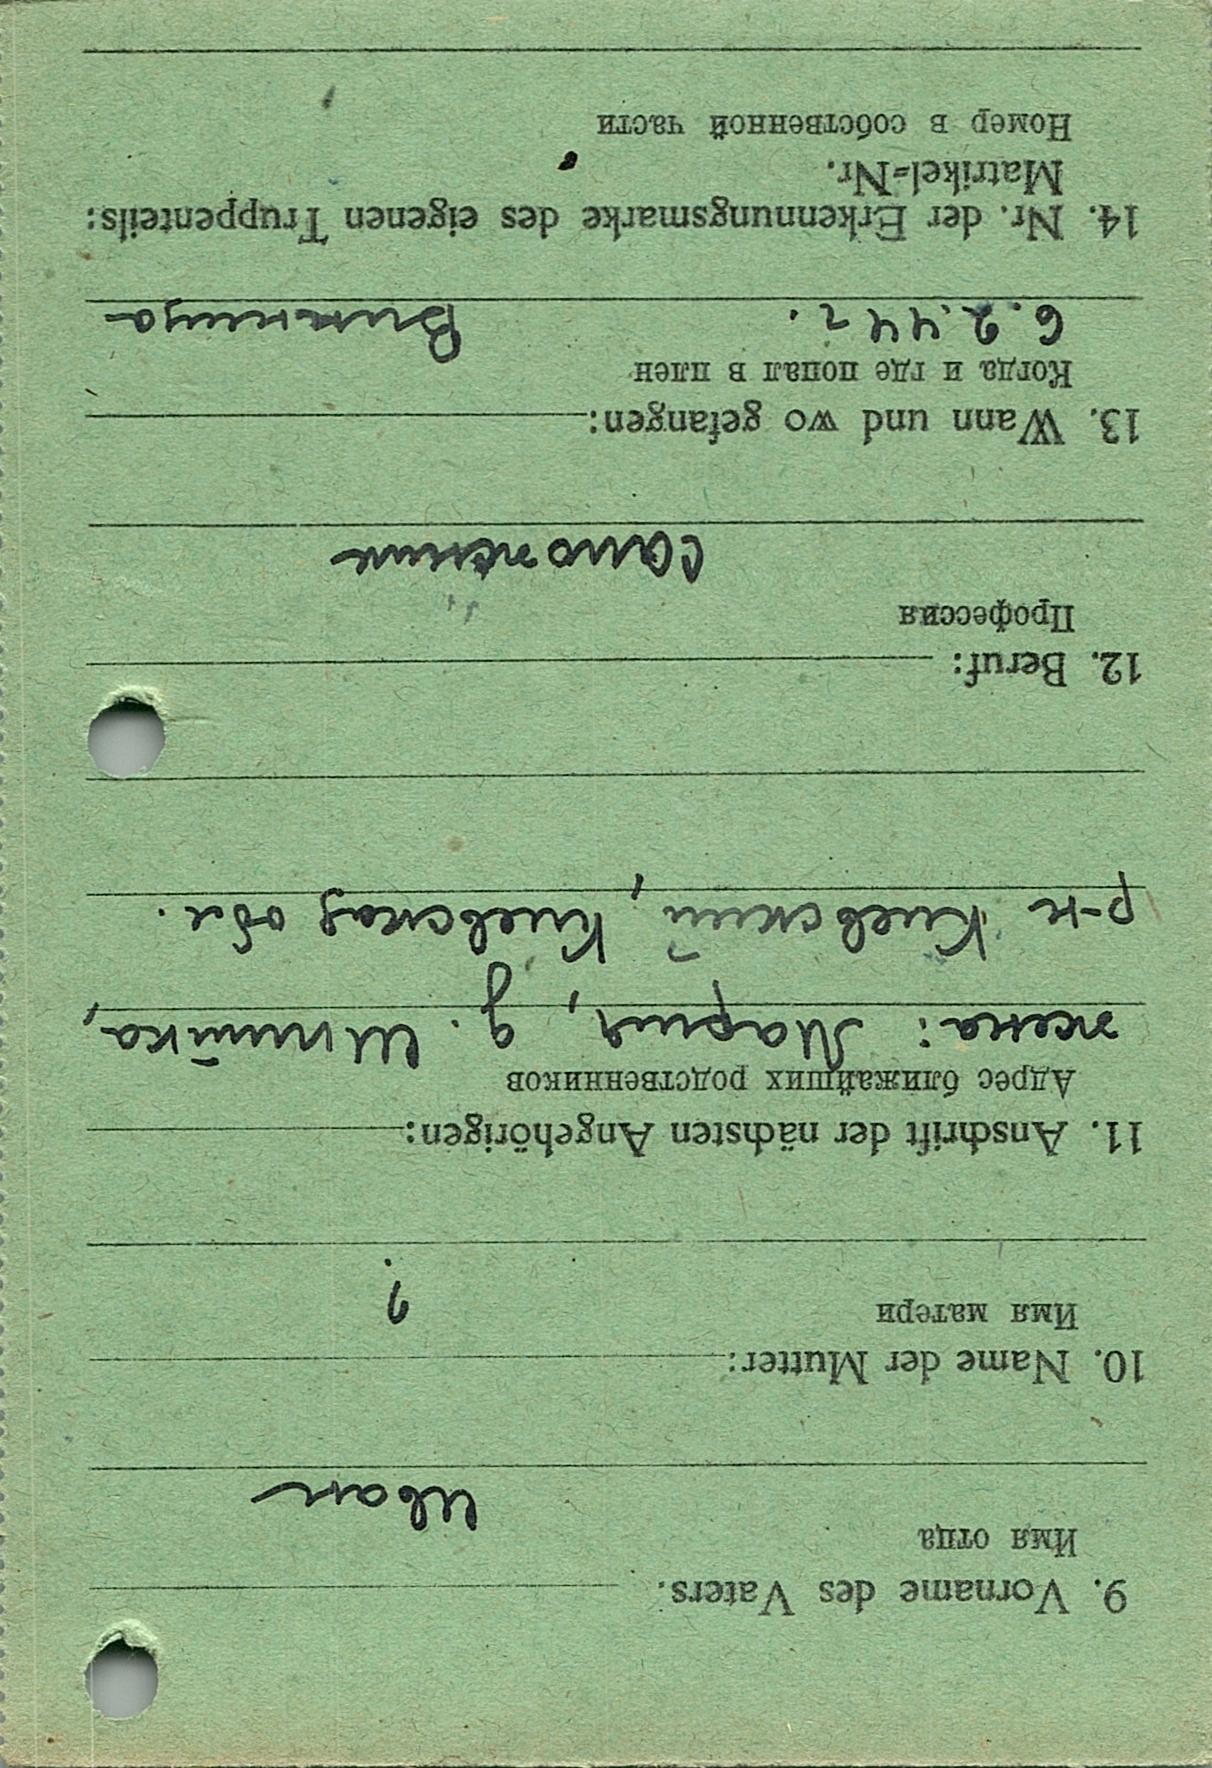 9. Vorname des Vaters.
Имя отца
Иван
10. Name der Mutter:
Имя матери
?
11. Anschrift der nächsten Angehörigen:
Адрес ближайших родственников
жена: Мария, д. Шпитька,
р-н Киевский, Киевская обл.
12. Beruf:
Профессия
сапожник
13. Wann und wo gefangen:
Когда и где попал в плен
6.2.44 г. Винница
14. Nr. der Erkennungsmarke des eigenen Truppenteils:
Matrikel-Nr.
Номер в собственной части